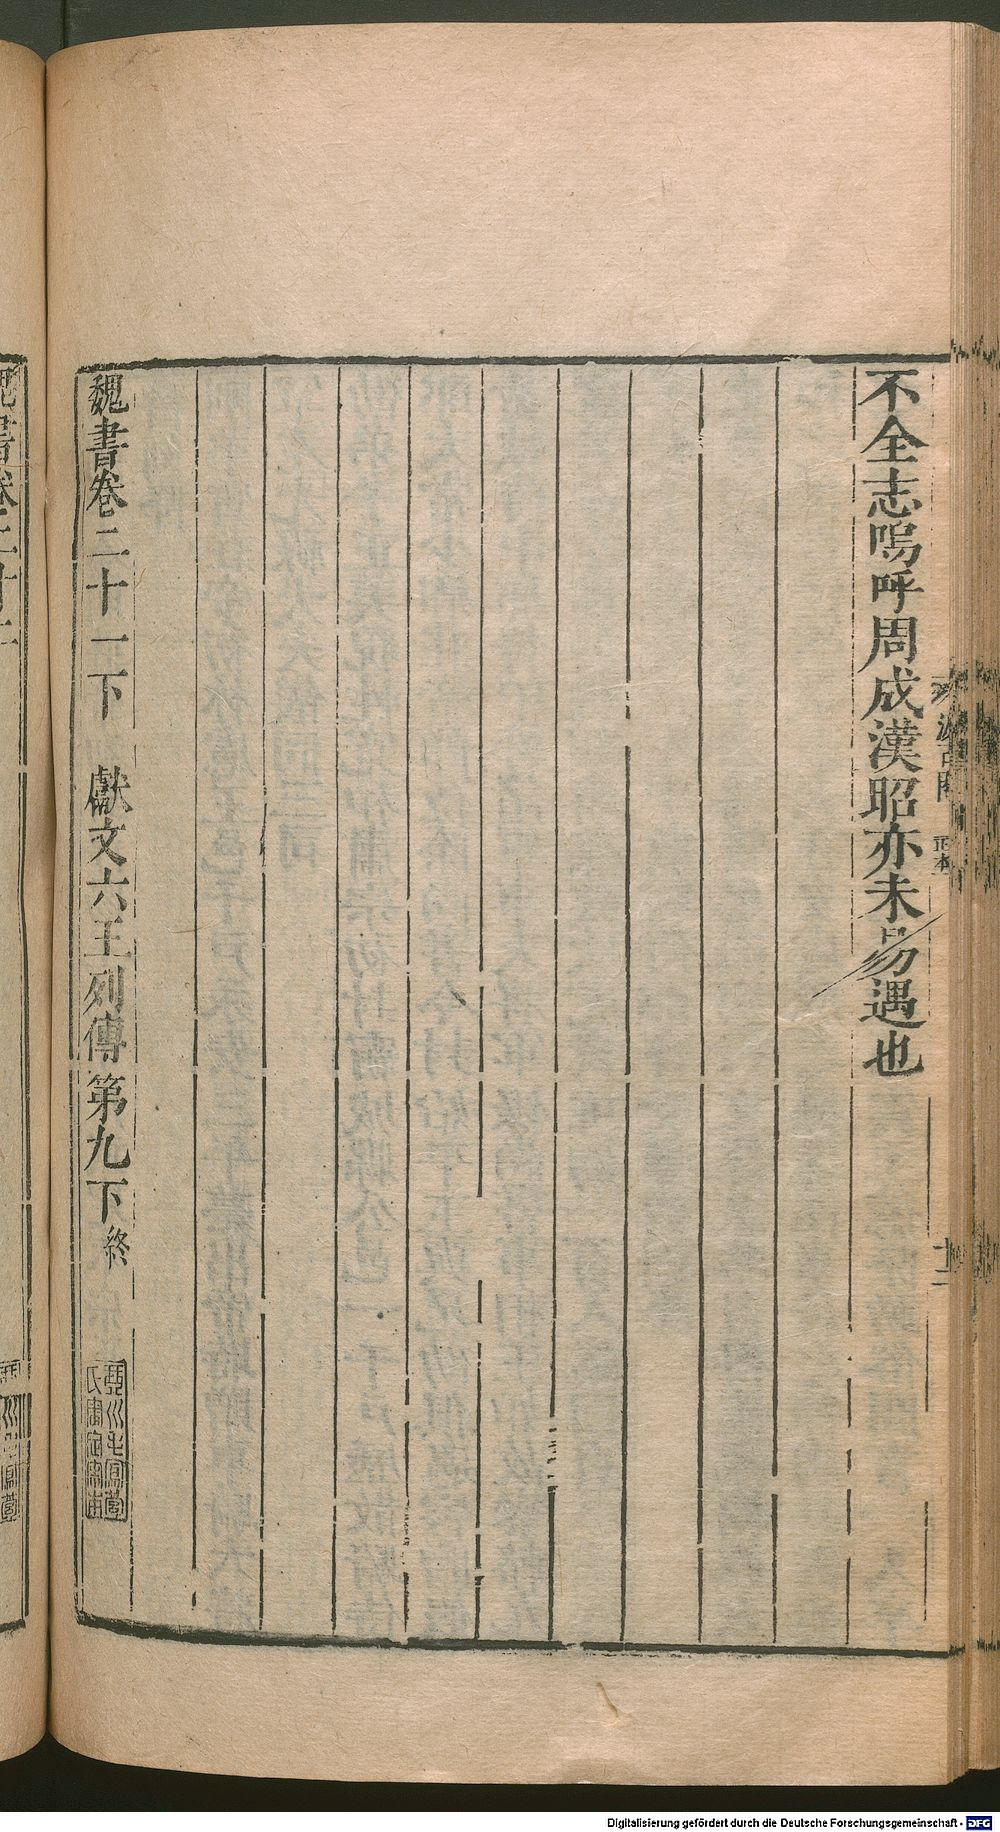 不全志嗚呼周成漢昭亦未易遇也
魏書卷二十一下　獻文六王列傳第九下終
Digitalisierung gefördert durch die Deutsche Forschungsgemeinschaft - DFG